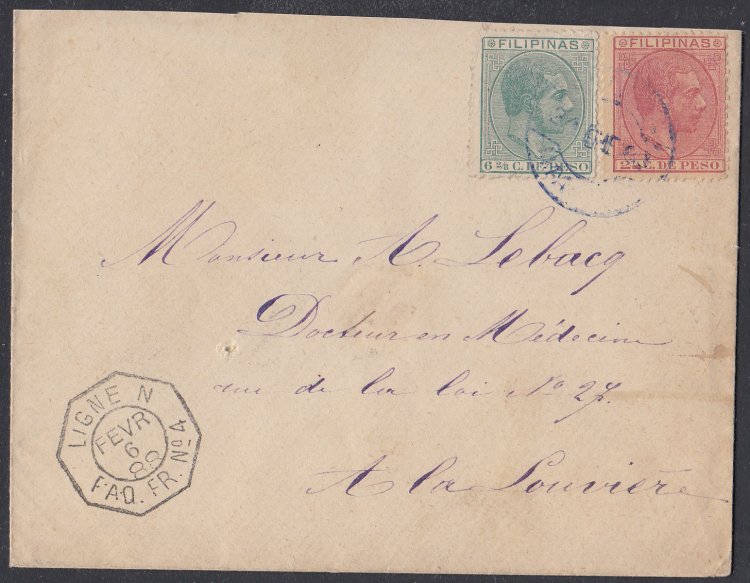 FILIPINAS
6 2/8 C. DE PESO
FILIPINAS
DE PESO
Monsieur A. Lebacq
Docteur en Médecine
rue de la loi No 27.
A la Louvière
LIGNE N
FEVR
6
88
PAQ. FR. No 4